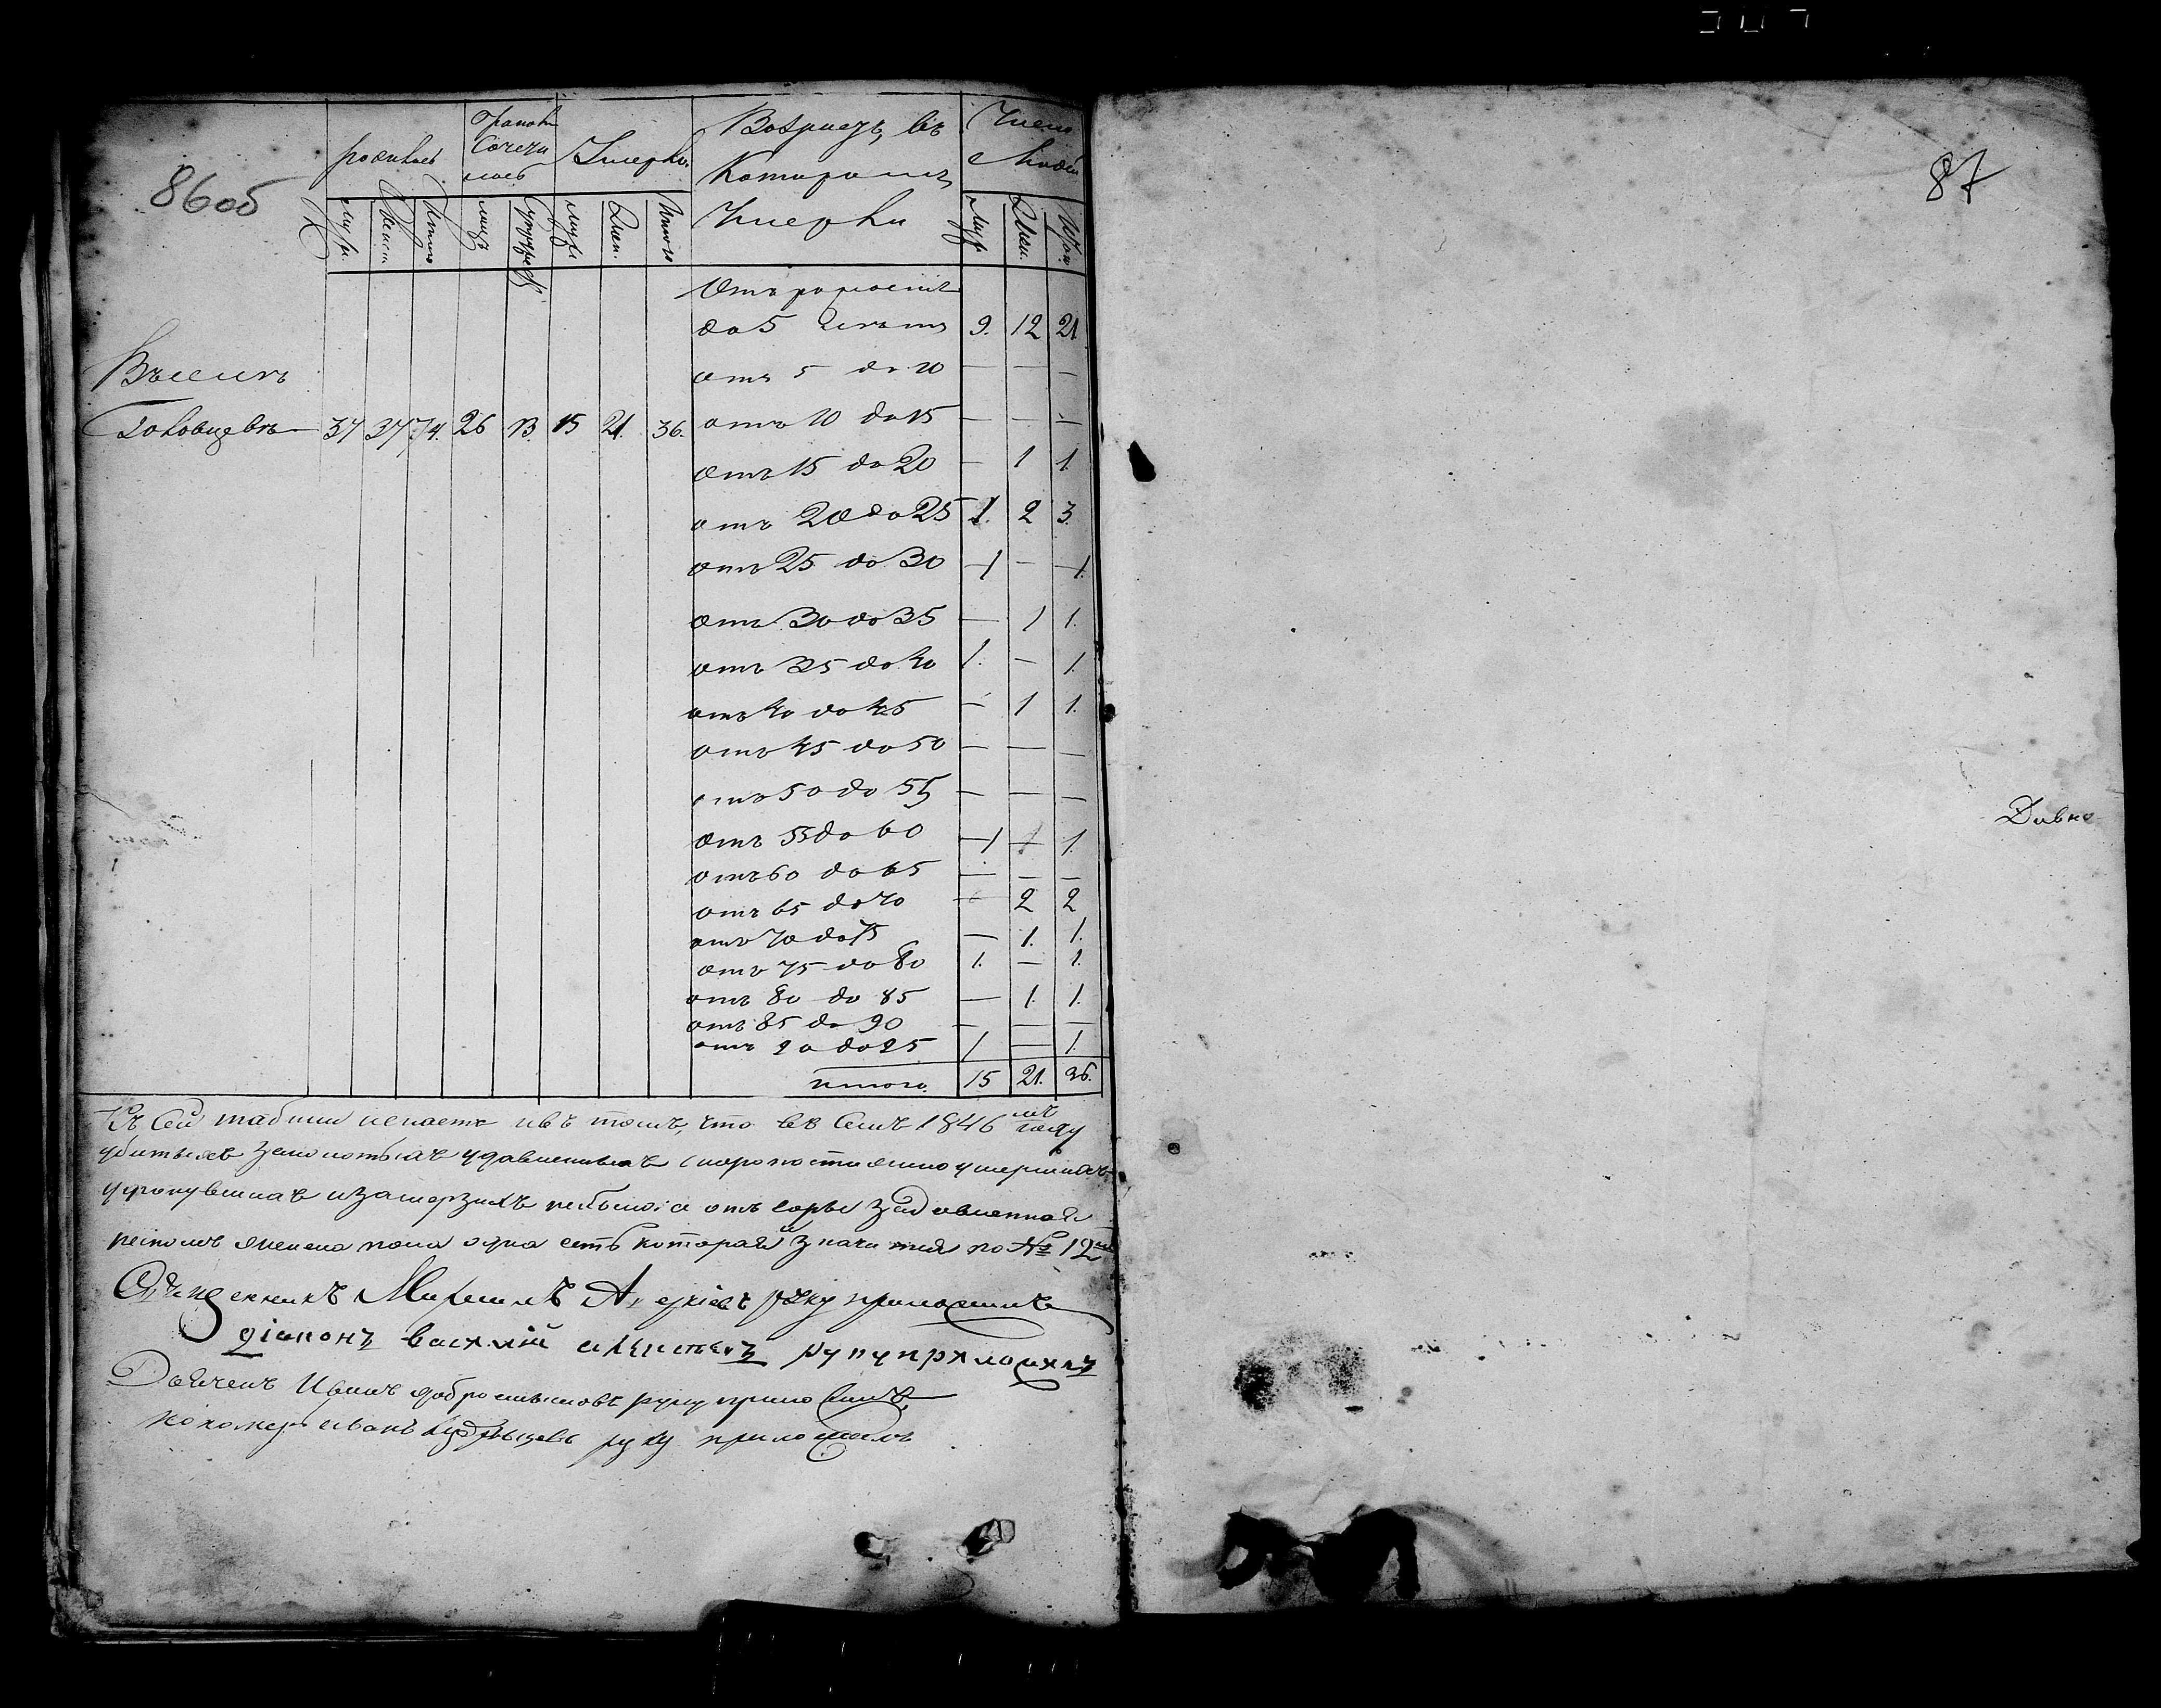 86об
87
родилось
Бракомъ
Сочета
лось
Умерло
Возрастъ, въ
Которомъ
Умерли
Число
Людей
Муж.
Женск.
Итого
Муж.
Жен.
Итого
Муж.
Жен.
Итого
Отъ рожденія
до 5 лѣтъ 9. 12 21.
отъ 5 до 10 — — —
Въ селѣ
37 37 74. 26 13. 15 21. 36. отъ 10 до 15 — — —
отъ 15 до 20 — 1 1.
отъ 20 до 25 1. 2 3.
отъ 25 до 30 1 — 1.
отъ 30 до 35 — 1 1.
отъ 35 до 40 1. — 1.
отъ 40 до 45 — 1 1.
отъ 45 до 50 — — —
отъ 50 до 55 — — —
отъ 55 до 60 1 1.
отъ 60 до 65 — — —
отъ 65 до 70 — 2 2
отъ 70 до 75 — 1. 1.
отъ 75 до 80 1. — 1.
отъ 80 до 85 — 1. 1.
отъ 85 до 90 — — —
отъ 90 до 95 1 — 1.
итого. 15 21. 36.
Къ сей табели въ томъ, что въ семъ 1846 мъ году
убитыхъ удавленныхъ скоропостижно умершихъ
и замерзшихъ небыло, а отъ задавленная
женска пола одна есть которая значится по № 12
Священникъ Михаилъ руку приложилъ
діаконъ василій руку приложилъ
Дьячекъ Иванъ добромысловъ руку приложилъ
пономарь иванъ руку приложилъ